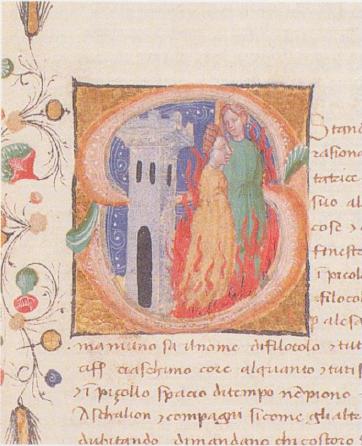 Stand
rasiona
tatrice
suo al
cose y a
fineste
y picol
filoco
p alesa
mamano sa ilnome difilocolo y tut
ciascheuno core alquanto y tuti
y ī picollo spacio ditempo nepiono
Aschalion y compagni sicome glialtr
dubitando dimandano chi costoro